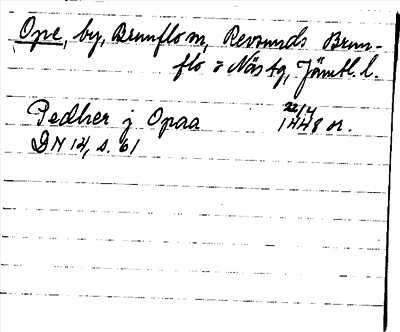 Ope, by, Brunflo sn, Revsunds Brun-
flo o Näs tg, Jämtl. l.
22/4
Pedher j Opaa 1448 or.
DN 14, s. 61